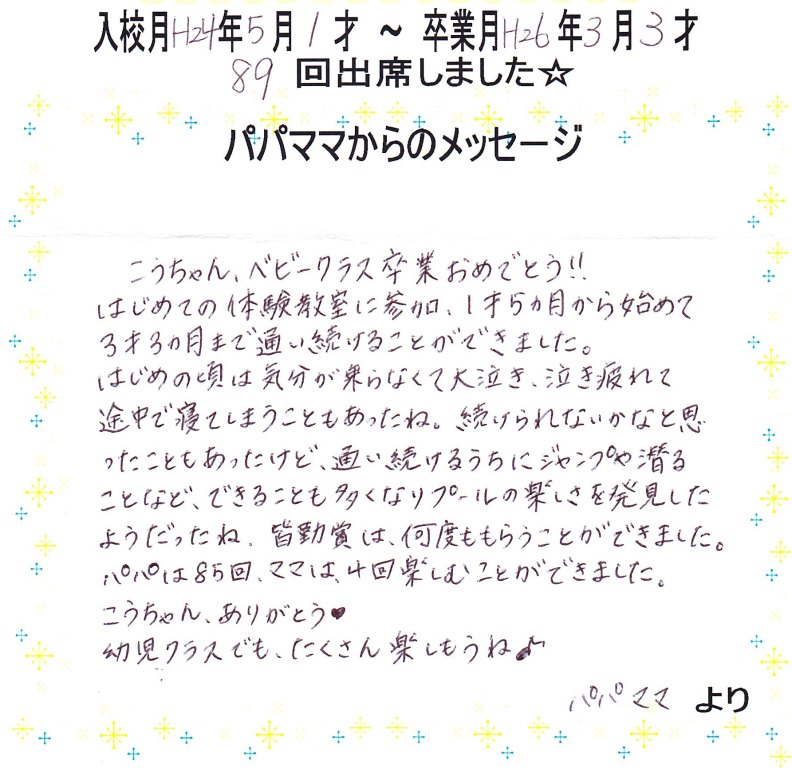 入校月H24年5月1才 ~ 卒業月H26年3月3才
89 回出席しました☆
パパママからのメッセージ
こうちゃん、ベビークラス卒業おめでとう!!
はじめての体験教室に参加、1才5ヵ月から始めて
3才3ヵ月まで通い続けることができました。
はじめの頃は気分が乗らなくて大泣き、泣き疲れて
途中で寝てしまうこともあったね。続けられないかなと思
ったこともあったけど、通い続けるうちにジャンプや潜る
ことなど、できることも多くなりプールの楽しさを発見した
ようだったね。皆勤賞は、何度ももらうことができました。
パパは85回、ママは、4回楽しむことができました。
こうちゃん、ありがとう♥
幼児クラスでも、たくさん楽しもうね♪
パパママ より